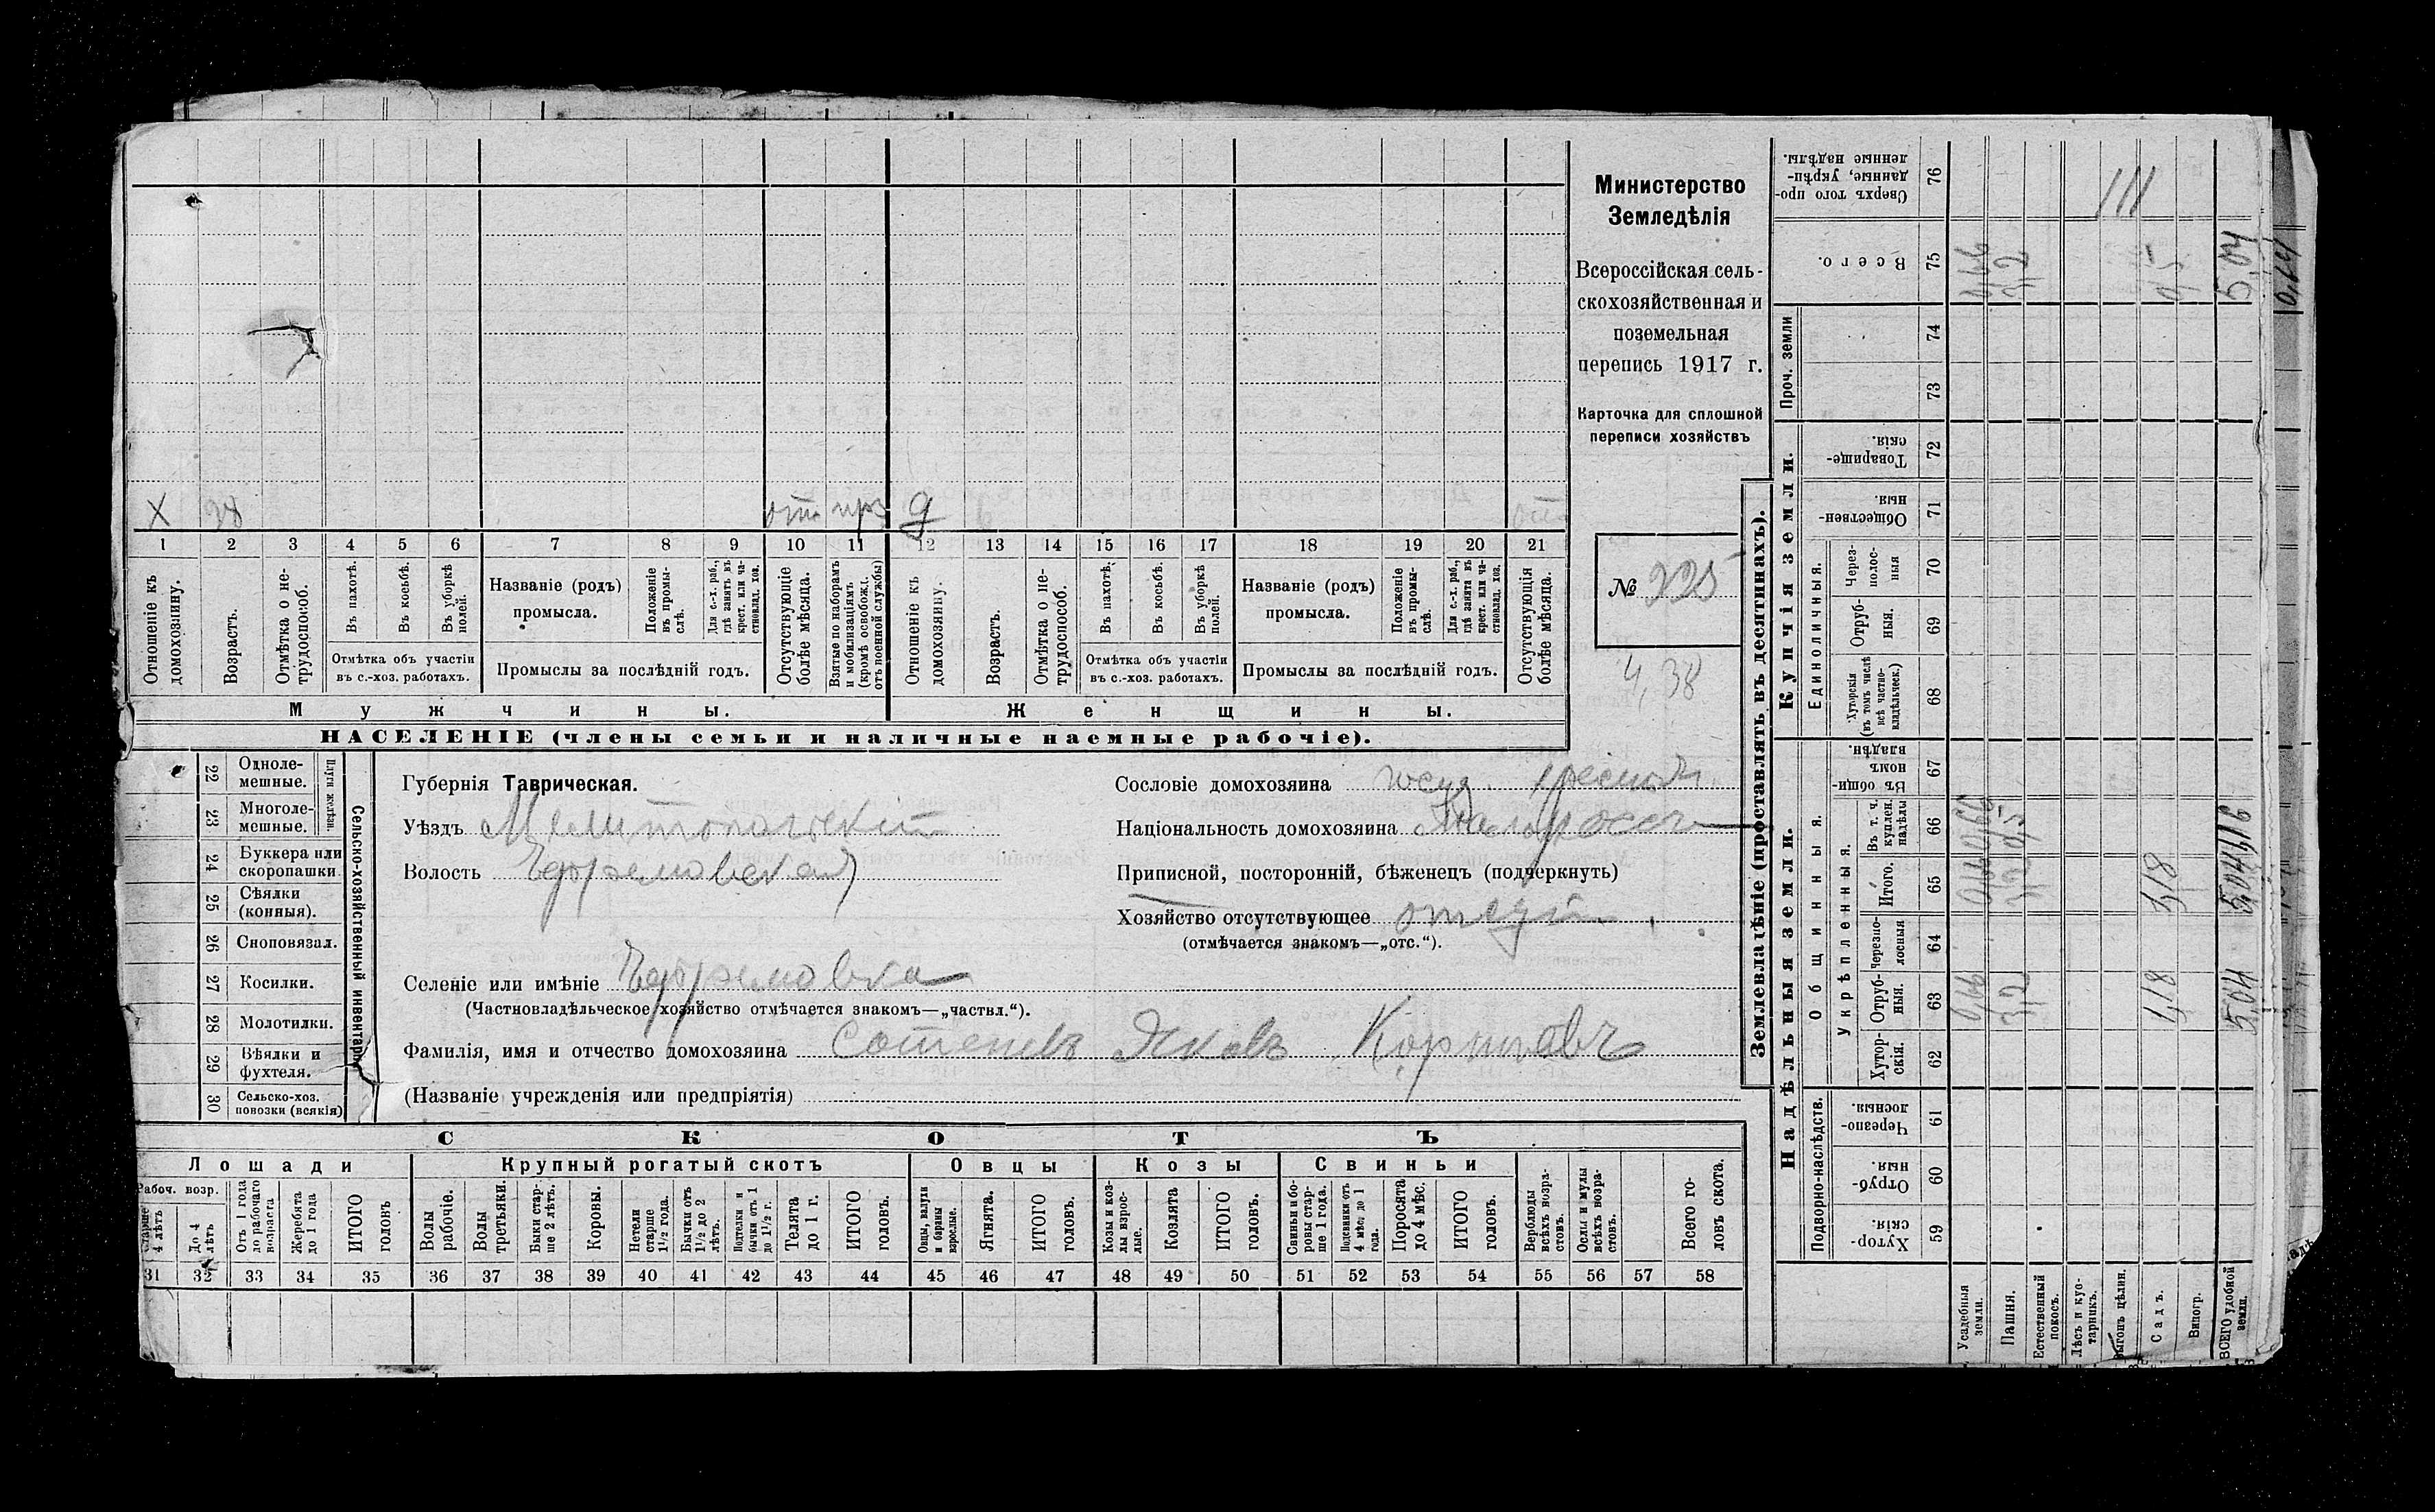 Министерство
Земледѣлія
Всероссійская сель-
скохозяйственная и
поземельная
перепись 1917 г.
Карточка для сплошной
переписи хозяйствъ
№ 225
4,38
X 38 отс. 9
1 2 3 4 5 6 7 8 9 10 11 12 13 14 15 16 17 18 19 20 21
Отношеніе къ домохозяину.
Возрастъ.
Отмѣтка о не-трудоспособ.
Въ пахотѣ.
Въ косьбѣ.
Въ уборкѣ полей.
Отмѣтка объ участіи въ с.-хоз. работахъ.
Названіе (родъ) промысла.
Положеніе въ промы-слѣ.
Для с.-х. раб., гдѣ занятъ въ крест. или ча-стновлад. хоз.
Промыслы за послѣдній годъ.
Отсутствующіе болѣе мѣсяца.
Взятые по наборамъ и мобилизаціямъ (кромѣ освобожд. отъ военной службы)
Отношеніе къ домохозяину.
Возрастъ.
Отмѣтка о не-трудоспособ.
Въ пахотѣ.
Въ косьбѣ.
Въ уборкѣ полей.
Отмѣтка объ участіи въ с.-хоз. работахъ.
Названіе (родъ) промысла.
Положеніе въ промы-слѣ.
Для с.-х. раб., гдѣ занята въ крест. или ча-стновлад. хоз.
Промыслы за послѣдній годъ.
Отсутствующія болѣе мѣсяца.
Мужчины.
Женщины.
НАСЕЛЕНІЕ (члены семьи и наличные наемные рабочіе).
22 Одноле-мешные.
23 Многоле-мешные.
Плуги желѣзн.
24 Буккера или скоропашки
25 Сѣялки (конныя).
26 Сноповязал.
27 Косилки.
28 Молотилки.
29 Вѣялки и фухтеля.
30 Сельско-хоз. повозки (всякія)
Сельско-хозяйственный инвентарь
Губернія Таврическая.
Уѣздъ Мелитопольскій
Волость Ефремовская
Селеніе или имѣніе Ефремовка
(Частновладѣльческое хозяйство отмѣчается знакомъ—„частвл.“).
Фамилія, имя и отчество домохозяина Яковъ
(Названіе учрежденія или предпріятія)
Сословіе домохозяина госуд. крестьян.
Національность домохозяина Малоросс
Приписной, посторонній, бѣженецъ (подчеркнуть)
Хозяйство отсутствующее
(отмѣчается знакомъ—„отс.“).
СКОТЪ
Лошади Крупный рогатый скотъ Овцы Козы Свиньи
Рабоч. возр.
Старше 4 лѣтъ
До 4 лѣтъ
Отъ 1 года до рабочаго возраста
Жеребята до 1 года
ИТОГО головъ
Волы рабочіе.
Волы третьяки.
Быки стар-ше 2 лѣтъ.
Коровы.
Нетели старше 1½ года.
Бычки отъ 1½ до 2 лѣтъ.
Подтелки и бычки отъ 1 до 1½ г.
Телята до 1 г.
ИТОГО головъ.
Овцы, валухи и бараны взрослые.
Ягнята.
ИТОГО головъ.
Козы и коз-лы взрос-лые.
Козлята
ИТОГО головъ.
Свиньи и бо-ровы стар-ше 1 года.
Подсвинки отъ 4 мѣс. до 1 года.
Поросята до 4 мѣс.
ИТОГО головъ.
Верблюды всѣхъ возра-стовъ.
Ослы и мулы всѣхъ возра-стовъ.
Всего го-ловъ скота.
31 32 33 34 35 36 37 38 39 40 41 42 43 44 45 46 47 48 49 50 51 52 53 54 55 56 57 58
Землевладѣніе (проставлять въ десятинахъ).
Надѣльныя земли.
Купчія земли.
Подворно-наслѣдств.
Общинныя.
Укрѣпленныя.
Единоличныя.
Проч. земли
Хутор-скія. 59
Отруб-ныя. 60
Черезпо-лосныя 61
Хутор-скія. 62
Отруб-ныя. 63
Черезпо-лосныя 64
Итого. 65
Въ т. ч. куплен. надѣлы 66
Въ общин-номъ владѣн. 67
Хуторскія (въ томъ числѣ всѣ частно-владѣльческ.) 68
Отруб-ныя. 69
Через-полос-ныя 70
Обществен-ныя. 71
Товарище-скія. 72
73
74
Всего. 75
Сверхъ того про-данные, укрѣп-ленные надѣлы. 76
Усадебныя земли. 0,66 0,66 0,66 0,66
Пашня. 3,2 3,2 3,2
Естественный покосъ.
Лѣсъ и кус-тарникъ.
Выгонъ цѣлин.
Садъ. 1,18 1,18
Виногр.
ВСЕГО удобной земли. 5,04 5,04 1,16 5,04